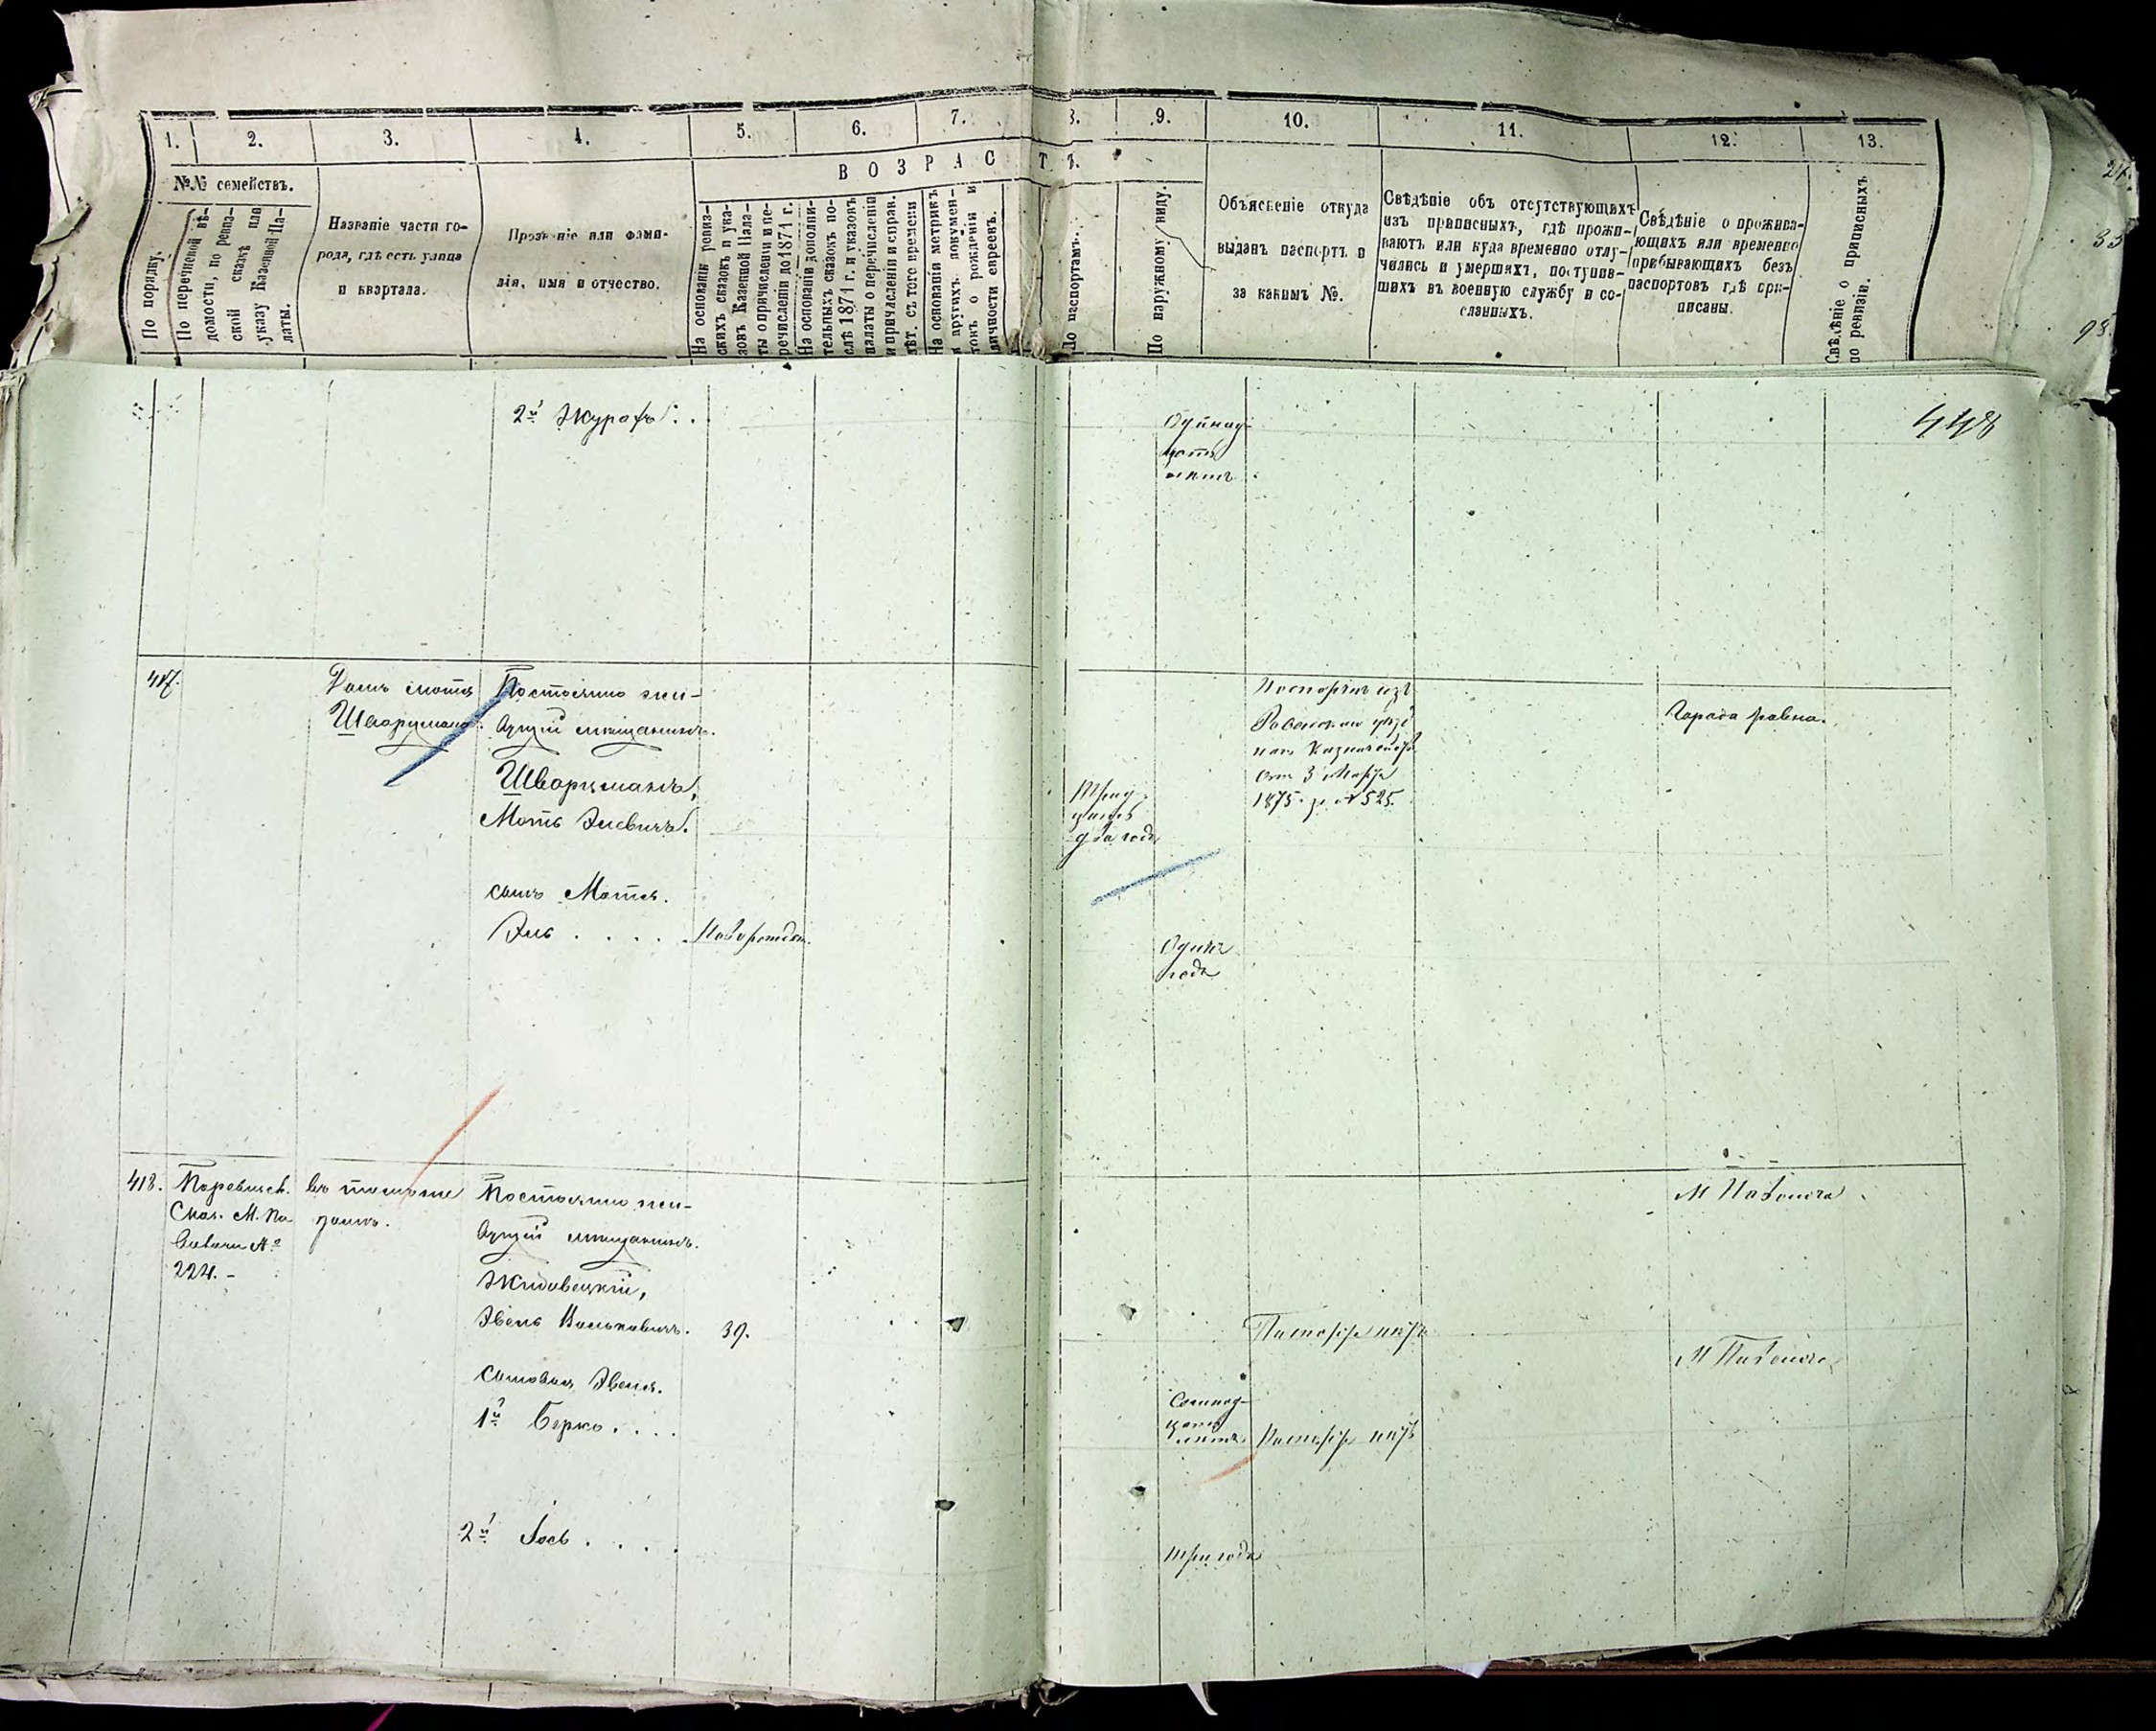 1. 2. 3. 4. 5. 6. 7. 8. 9. 10. 11. 12. 13.
№№ семействъ.
По порядку.
По перечневой вѣ-
домости, по ревиз-
ской сказкѣ или
указу Казенной Па-
латы.
Названіе части го-
рода, гдѣ есть улица
и квартала.
Прозваніе или фами-
лія, имя и отчество.
ВОЗРАСТЪ.
На основаніи ревиз-
скихъ сказокъ и ука-
зовъ Казенной Пала-
ты о причисленіи и пе-
речисленіи до 1871 г.
На основаніи дополни-
тельныхъ сказокъ по-
слѣ 1871 г. и указовъ
палаты о перечисленіи
и причисленіи и справ.
лѣт. съ того времени
На основаніи метрикъ
и другихъ докумен-
товъ о рожденіи и
личности евреевъ.
По паспортамъ.
По наружному виду.
Объясненіе откуда
выданъ паспортъ и
за какимъ №.
Свѣдѣніе объ отсутствующихъ
изъ приписныхъ, гдѣ прожи-
ваютъ или куда временно отлу-
чились и умершихъ, поступив-
шихъ въ военную службу и со-
сланныхъ.
Свѣдѣніе о прожива-
ющихъ или временно
прибывающихъ безъ
паспортовъ гдѣ при-
писаны.
Свѣдѣніе о приписныхъ
по ревизіи.
448
2й
Одинад-
цать
лѣтъ
417.
Домъ Мотя
Шварцмана.
Постоянно жи-
вущій мѣщанинъ.
Шварцманъ,
Моть Элевичъ.
Трид-
цать
два года
Паспортъ изъ
Казначейства
отъ 3 Марта
1875 г. № 525.
Города Ровна.
сынъ Мотя.
Эль . . . .
Новорожден.
Одинъ
годъ
418.
Сказ. М. Па
волочи №
224.-
въ томъ же
домѣ.
Постоянно жи-
вущій мѣщанинъ.
Жидовецкій,
39.
Паспорта нѣтъ
М Паволочи
сыновья
1й Берко . . . .
Семнад-
цать
лѣтъ
Паспорта нѣтъ
М Паволочи
2й Іось . . . .
три года